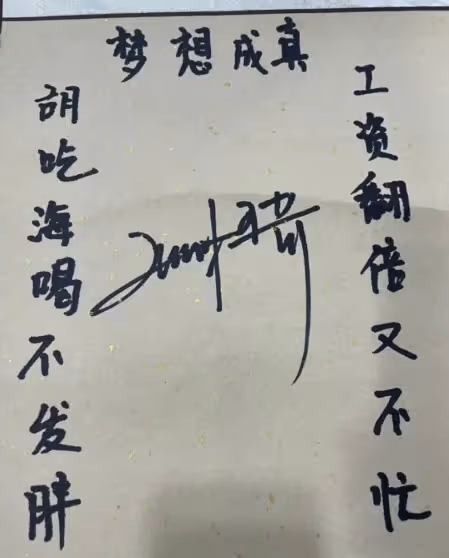 梦想成真
工资翻倍又不忙
胡吃海喝不发胖